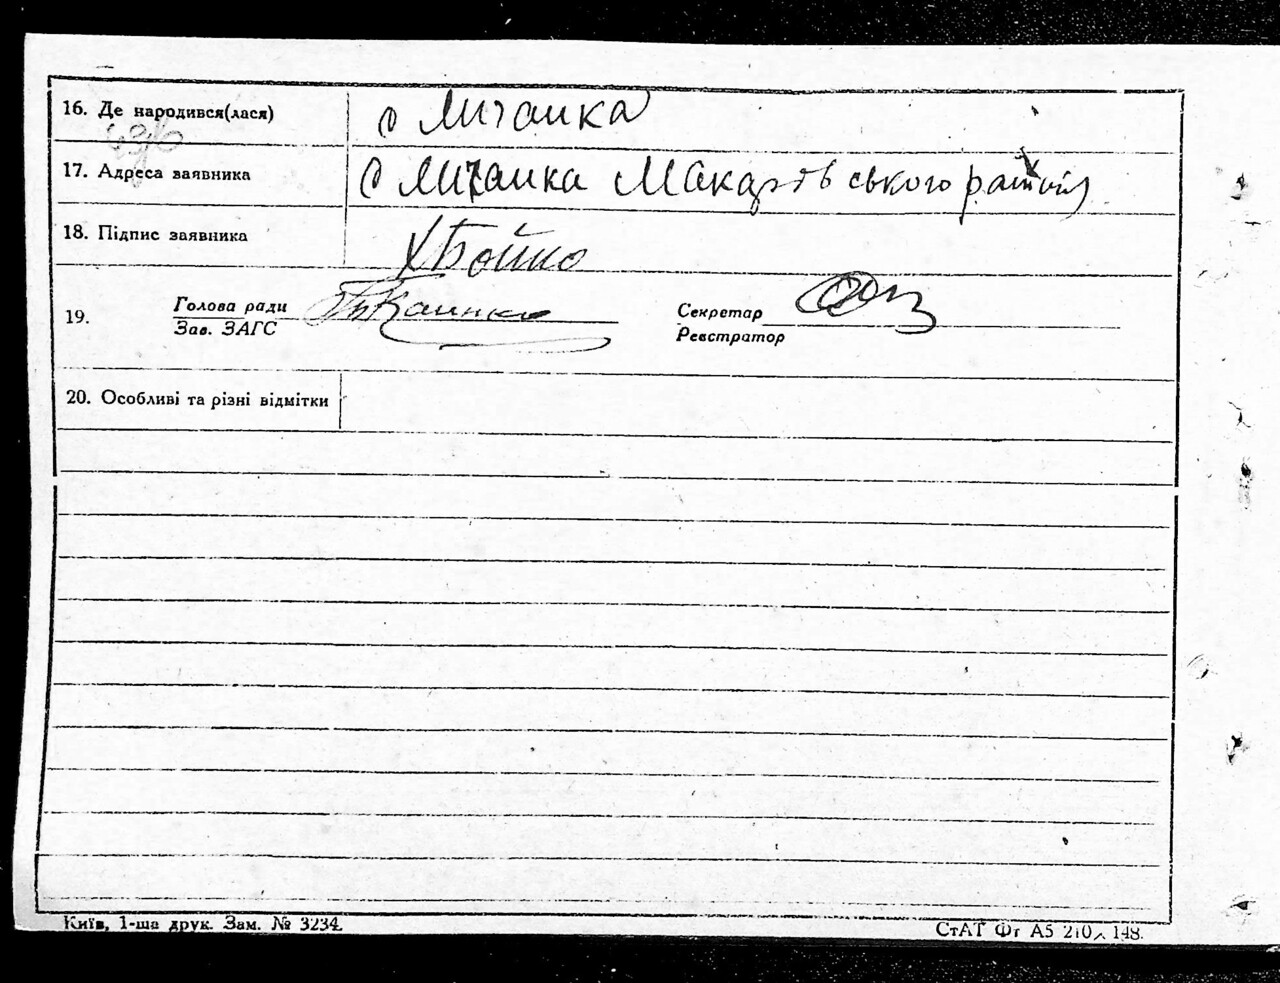 16. Де народився(лася) с Личанка
17. Адреса заявника с Личанка Макарівського району
18. Підпис заявника Х Бойко
19. Голова ради
Зав. ЗАГС
Секретар
Реєстратор
20. Особливі та різні відмітки
Київ, 1-ша друк. Зам. № 3234.
СтАТ Фт А5 210 148.